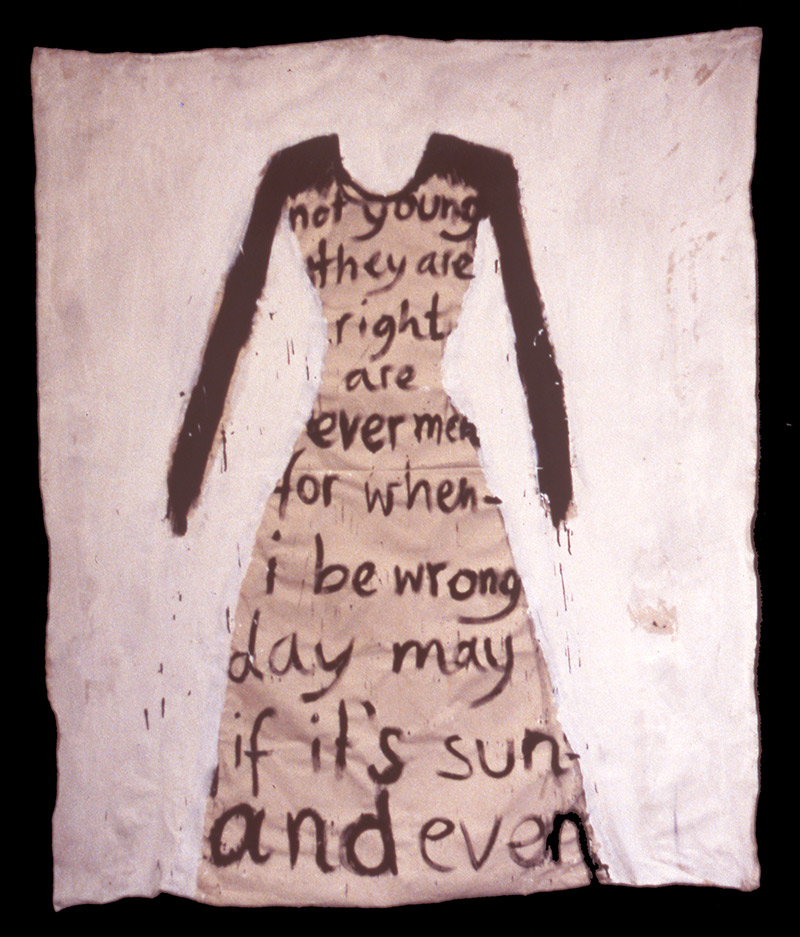 not young
they are
right
are
ever men
for when-
i be wrong
day may
if it's sun-
and even